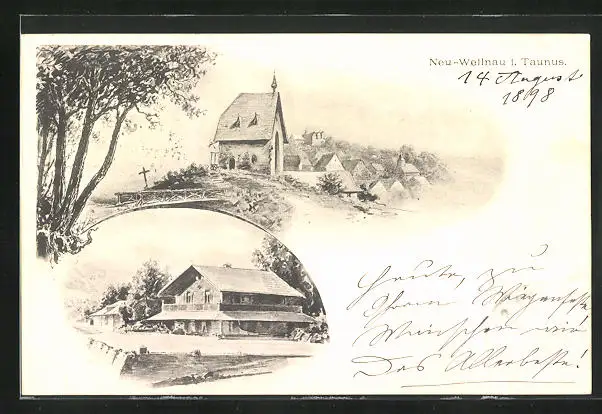 Neu-Weilnau i. Taunus.
14 August
1898
Heute, zu
Ihrem Wiegenfeste
Wünschen wir
Das Allerbeste!